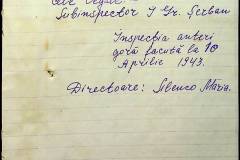 Subinspector I Gr. Șerban
Inspecția anteri
oară făcută la 10
Aprilie 1943.
Directoare: Silenco Maria.